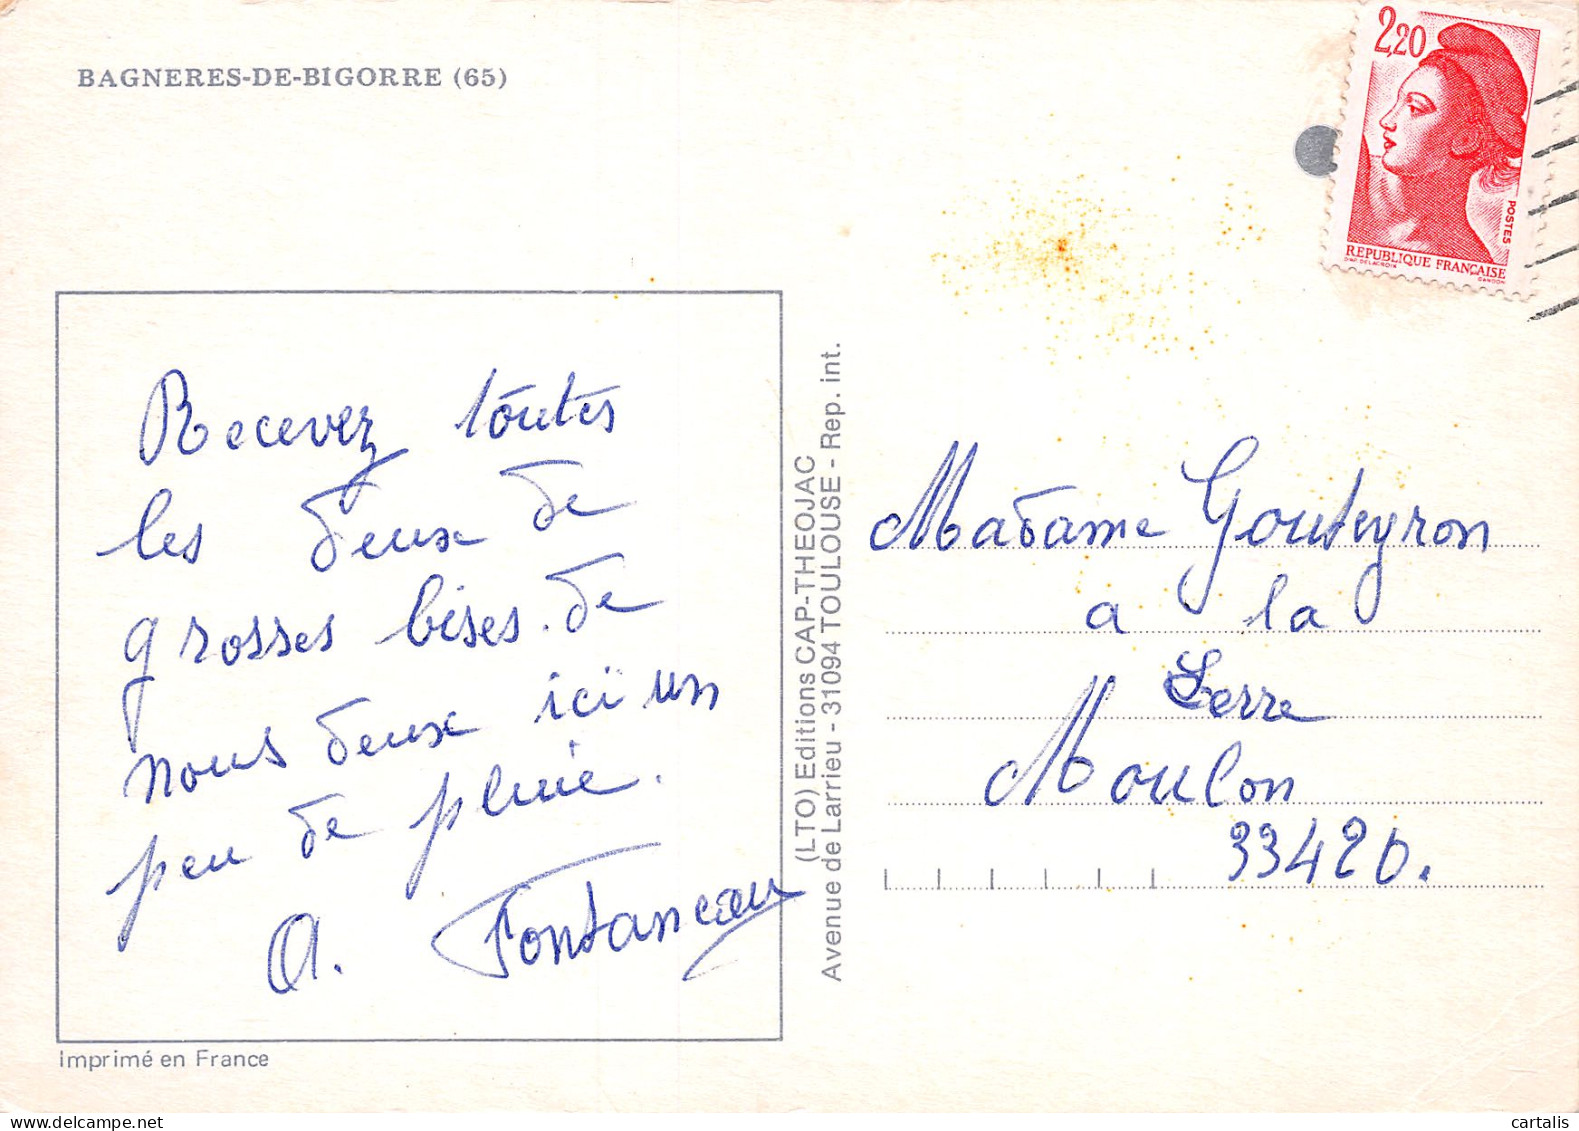 BAGNERES-DE-BIGORRE (65)
2,20
POSTES
REPUBLIQUE FRANÇAISE
D'AP. DELACROIX GANDON
Recevez toutes
les deux de
grosses bises. de
nous deux ici un
peu de pluie.
A. Fontaneau
Imprimé en France
(LTO) Editions CAP-THEOJAC
Avenue de Larrieu - 31094 TOULOUSE - Rep. int.
Madame Gouteyron
a la
Serre
Moulon
33420.
cartalis